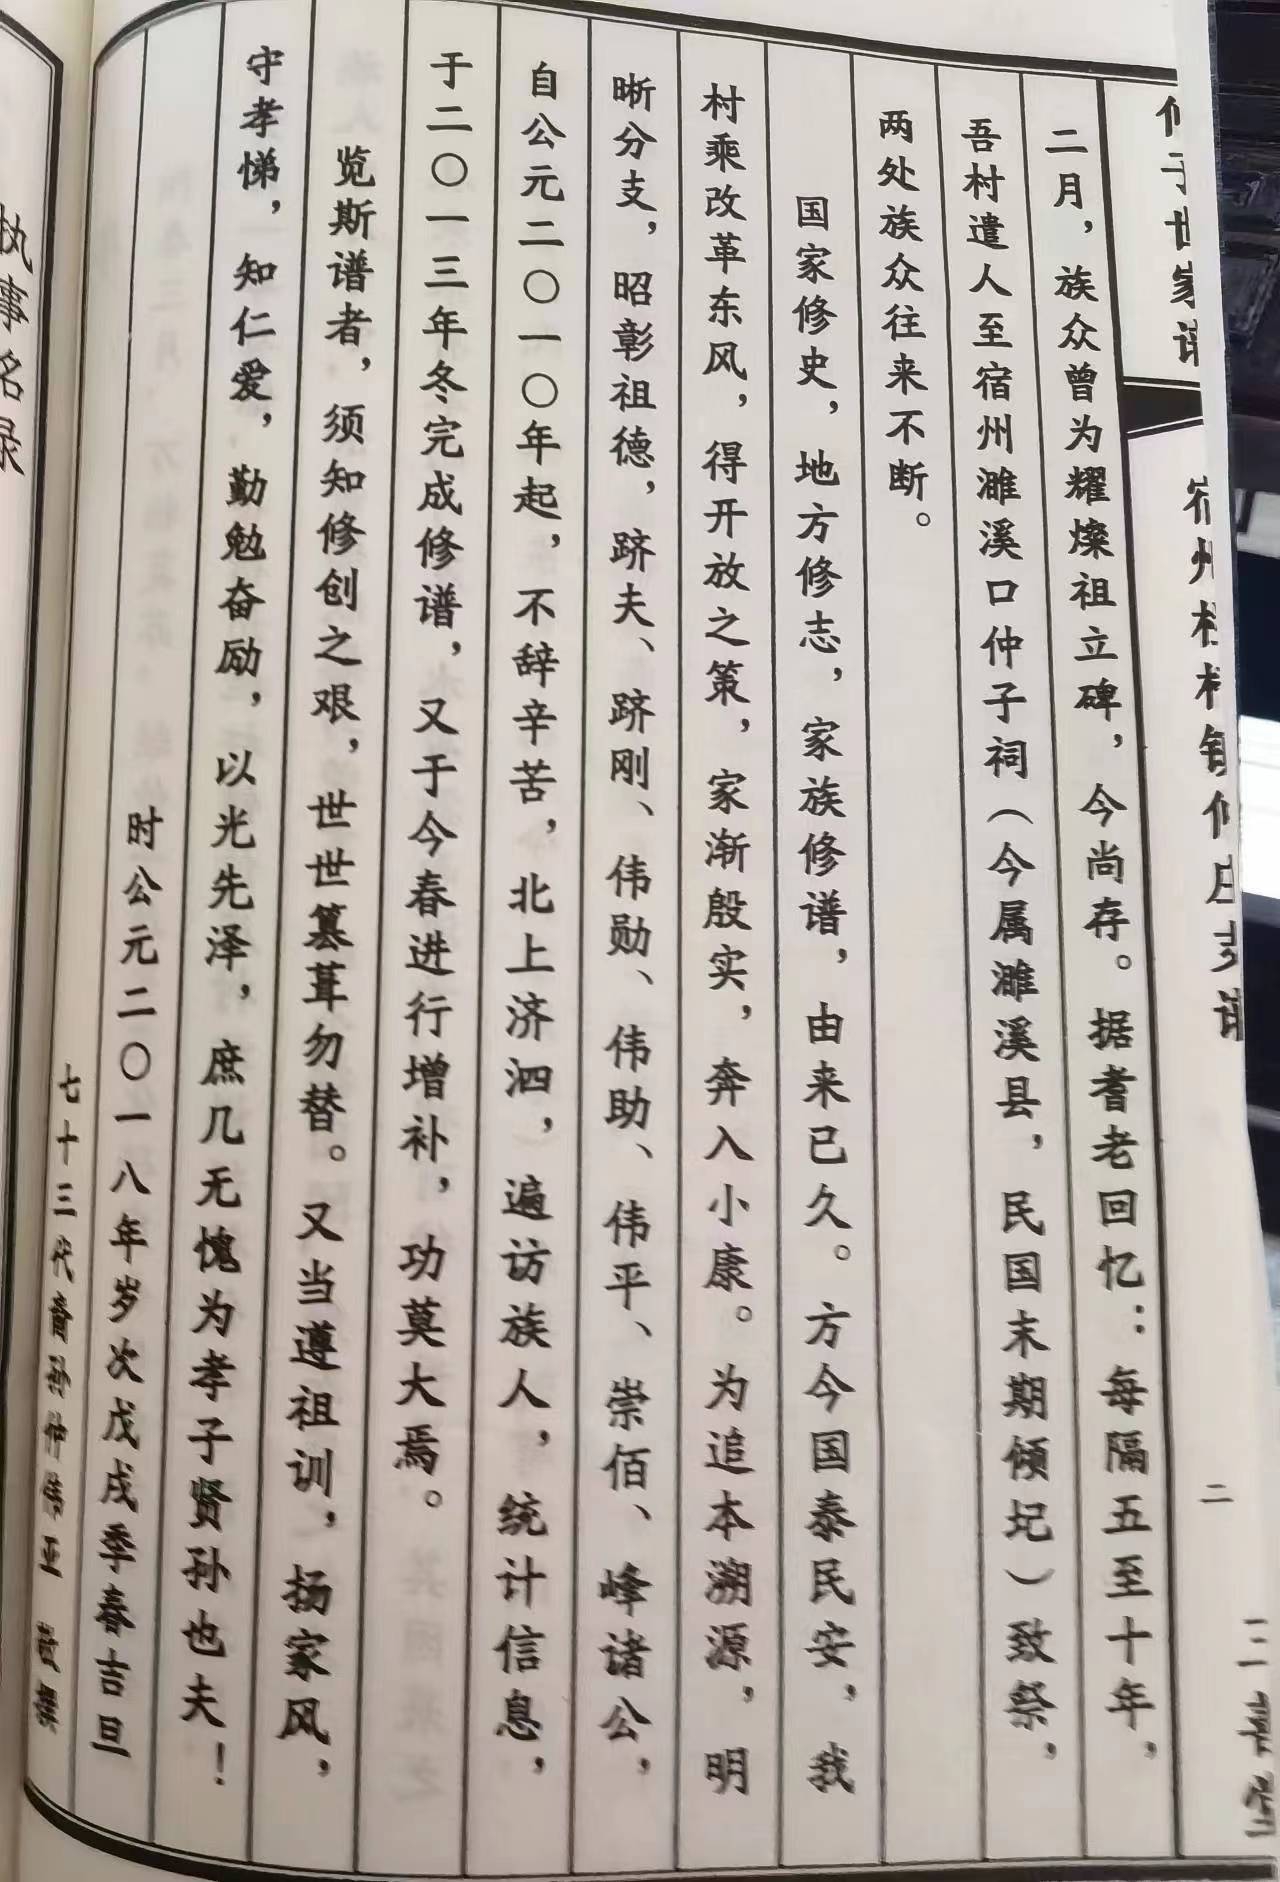 仲子世家谱
宿州 镇仲庄支谱
二
三喜堂
二月，族众曾为耀燦祖立碑，今尚存。据耆老回忆：每隔五至十年，
吾村遣人至宿州濉溪口仲子祠（今属濉溪县，民国末期倾圮）致祭，
两处族众往来不断。
国家修史，地方修志，家族修谱，由来已久。方今国泰民安，我
村乘改革东风，得开放之策，家渐殷实，奔入小康。为追本溯源，明
晰分支，昭彰祖德，跻夫、跻刚、伟勋、伟助、伟平、崇佰、峰诸公，
自公元二〇一〇年起，不辞辛苦，北上济泗，遍访族人，统计信息，
于二〇一三年冬完成修谱，又于今春进行增补，功莫大焉。
览斯谱者，须知修创之艰，世世篡葺勿替。又当遵祖训，扬家风，
守孝悌，知仁爱，勤勉奋励，以光先泽，庶几无愧为孝子贤孙也夫！
时公元二〇一八年岁次戊戌季春吉旦
七十三代裔孙仲伟亚 敬撰
执事名录